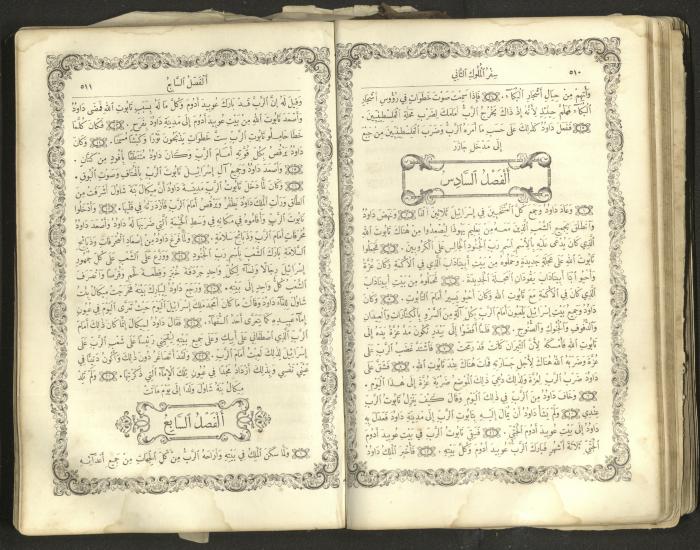 ٥١٠
سِفْرُ الْمُلُوكِ الثَّانِي
وَأْتِهِمْ مِنْ حِيَالِ أَشْجَارِ الْبُكَاءِ فَإِذَا سَمِعْتَ صَوْتَ خَطَوَاتٍ فِي رُؤُوسِ أَشْجَارِ
الْبُكَاءِ فَهَلُمَّ حِينَئِذٍ لِأَنَّهُ إِذْ ذَاكَ يَخْرُجُ الرَّبُّ أَمَامَكَ لِضَرْبِ مَحَلَّةِ الْفَلِسْطِينِيِّينَ
فَفَعَلَ دَاوُدُ كَذٰلِكَ عَلَى حَسَبِ مَا أَمَرَهُ الرَّبُّ وَضَرَبَ الْفَلِسْطِينِيِّينَ مِنْ جَبْعَ
إِلَى مَدْخَلِ جَازَرَ
أَلْفَصْلُ السَّادِسُ
وَعَادَ دَاوُدُ وَجَمَعَ كُلَّ الْمُنْتَخَبِينَ فِي إِسْرَائِيلَ ثَلَاثِينَ أَلْفًا وَنَهَضَ دَاوُدُ
وَانْطَلَقَ بِجَمِيعِ الشَّعْبِ الَّذِينَ مَعَهُ مِنْ بَعْلِيمِ يَهُوذَا لِيُصْعِدُوا مِنْ هُنَاكَ تَابُوتَ اللهِ
الَّذِي كَانَ يُدْعَى عَلَيْهِ بِالِاسْمِ اسْمِ رَبِّ الْجُنُودِ الْجَالِسِ عَلَى الْكَرُوبِينَ فَحَمَلُوا
تَابُوتَ اللهِ عَلَى عَجَلَةٍ جَدِيدَةٍ وَحَمَلُوهُ مِنْ بَيْتِ أَبِينَادَابَ الَّذِي فِي الْأَكَمَةِ وَكَانَ عُزَّةُ
وَأَحْيُو ابْنَا أَبِينَادَابَ يَقُودَانِ الْعَجَلَةَ الْجَدِيدَةَ فَحَمَلُوهُ مِنْ بَيْتِ أَبِينَادَابَ
الَّذِي كَانَ فِي الْأَكَمَةِ مَعَ تَابُوتِ اللهِ وَكَانَ أَحْيُو يَسِيرُ أَمَامَ التَّابُوتِ وَكَانَ
دَاوُدُ وَجَمِيعُ بَيْتِ إِسْرَائِيلَ يَلْعَبُونَ أَمَامَ الرَّبِّ بِكُلِّ آلَةٍ مِنَ السَّرْوِ وَالْكِنَّارَاتِ وَالْعِيدَانِ
وَالدُّفُوفِ وَالْجُنُوكِ وَالصُّنُوجِ فَلَمَّا أَفْضَوْا إِلَى بَيْدَرِ نَكُونَ مَدَّ عُزَّةُ يَدَهُ إِلَى
تَابُوتِ اللهِ فَأَمْسَكَهُ لِأَنَّ الثِّيرَانَ كَانَتْ قَدْ رَمَحَتْ فَاشْتَدَّ غَضَبُ الرَّبِّ عَلَى
عُزَّةَ وَضَرَبَهُ اللهُ هُنَاكَ لِأَجْلِ جَسَارَتِهِ فَمَاتَ هُنَاكَ عِنْدَ تَابُوتِ اللهِ فَشَقَّ عَلَى
دَاوُدَ ضَرْبُ الرَّبِّ لِعُزَّةَ وَلِذٰلِكَ دُعِيَ ذٰلِكَ الْمَوْضِعُ ضَرْبَةَ عُزَّةَ إِلَى هٰذَا الْيَوْمِ
وَخَافَ دَاوُدُ مِنَ الرَّبِّ فِي ذٰلِكَ الْيَوْمِ وَقَالَ كَيْفَ يَنْزِلُ تَابُوتُ الرَّبِّ
عِنْدِي وَلَمْ يَشَأْ دَاوُدُ أَنْ يُمَالَ إِلَيْهِ بِتَابُوتِ الرَّبِّ إِلَى مَدِينَةِ دَاوُدَ فَعَدَلَ بِهِ
دَاوُدُ إِلَى بَيْتِ عُوبِيدَ أَدُومَ الْجَتِّيِّ فَبَقِيَ تَابُوتُ الرَّبِّ فِي بَيْتِ عُوبِيدَ أَدُومَ
الْجَتِّيِّ ثَلَاثَةَ أَشْهُرٍ فَبَارَكَ الرَّبُّ عُوبِيدَ أَدُومَ وَكُلَّ بَيْتِهِ فَأُخْبِرَ الْمَلِكُ دَاوُدُ
أَلْفَصْلُ السَّابِعُ
٥١١
وَقِيلَ لَهُ إِنَّ الرَّبَّ قَدْ بَارَكَ عُوبِيدَ أَدُومَ وَكُلَّ مَا لَهُ بِسَبَبِ تَابُوتِ اللهِ فَمَضَى دَاوُدُ
وَأَصْعَدَ تَابُوتَ اللهِ مِنْ بَيْتِ عُوبِيدَ أَدُومَ إِلَى مَدِينَةِ دَاوُدَ بِفَرَحٍ فَكَانَ كُلَّمَا
خَطَا حَامِلُو تَابُوتِ الرَّبِّ سِتَّ خَطَوَاتٍ يَذْبَحُونَ ثَوْرًا وَكَبْشًا مُسَمَّنًا وَكَانَ
دَاوُدُ يَرْقُصُ بِكُلِّ قُوَّتِهِ أَمَامَ الرَّبِّ وَكَانَ دَاوُدُ مُتَنَطِّقًا بِأَفُودٍ مِنْ كَتَّانٍ
فَأَصْعَدَ دَاوُدُ وَجَمِيعُ آلِ إِسْرَائِيلَ تَابُوتَ الرَّبِّ بِالْهُتَافِ وَصَوْتِ الْبُوقِ
وَكَانَ لَمَّا دَخَلَ تَابُوتُ الرَّبِّ مَدِينَةَ دَاوُدَ أَنَّ مِيكَالَ بِنْتَ شَاوُلَ أَشْرَفَتْ مِنَ
الطَّاقِ وَرَأَتِ الْمَلِكَ دَاوُدَ يَطْفِرُ وَيَرْقُصُ أَمَامَ الرَّبِّ فَازْدَرَتْهُ فِي قَلْبِهَا وَأَدْخَلُوا
تَابُوتَ الرَّبِّ وَأَقَامُوهُ فِي مَكَانِهِ فِي وَسَطِ الْخَيْمَةِ الَّتِي ضَرَبَهَا لَهُ دَاوُدُ وَأَصْعَدَ دَاوُدُ
مُحْرَقَاتٍ أَمَامَ الرَّبِّ وَذَبَائِحَ سَلَامَةٍ وَلَمَّا فَرَغَ دَاوُدُ مِنْ إِصْعَادِ الْمُحْرَقَاتِ وَذَبَائِحِ
السَّلَامَةِ بَارَكَ الشَّعْبَ بِاسْمِ رَبِّ الْجُنُودِ وَوَزَّعَ عَلَى الشَّعْبِ عَلَى كُلِّ جُمْهُورِ
إِسْرَائِيلَ رِجَالًا وَنِسَاءً لِكُلِّ وَاحِدٍ جَرْدَقَةَ خُبْزٍ وَقِطْعَةَ لَحْمٍ وَقُرْصًا وَانْصَرَفَ
الشَّعْبُ كُلُّ وَاحِدٍ إِلَى بَيْتِهِ وَرَجَعَ دَاوُدُ لِيُبَارِكَ بَيْتَهُ فَخَرَجَتْ مِيكَالُ بِنْتُ
شَاوُلَ لِلِقَاءِ دَاوُدَ وَقَالَتْ مَا كَانَ أَمْجَدَ مَلِكَ إِسْرَائِيلَ الْيَوْمَ حَيْثُ تَعَرَّى الْيَوْمَ فِي عُيُونِ
إِمَاءِ عَبِيدِهِ كَمَا يَتَعَرَّى أَحَدُ السُّفَهَاءِ فَقَالَ دَاوُدُ لِمِيكَالَ إِنَّمَا كَانَ ذٰلِكَ أَمَامَ
الرَّبِّ الَّذِي اصْطَفَانِي عَلَى أَبِيكِ وَعَلَى جَمِيعِ بَيْتِهِ لِيُقِيمَنِي رَئِيسًا عَلَى شَعْبِ الرَّبِّ عَلَى
إِسْرَائِيلَ لِذٰلِكَ لَعِبْتُ أَمَامَ الرَّبِّ وَلَقَدْ أَتَصَاغَرُ دُونَ ذٰلِكَ وَأَكُونُ دَنِيئًا فِي
عَيْنَيْ نَفْسِي وَبِذٰلِكَ أَزْدَادُ مَجْدًا فِي عُيُونِ تِلْكَ الْإِمَاءِ الَّتِي ذَكَرْتِهَا وَلَمْ تَلِدْ
مِيكَالُ بِنْتُ شَاوُلَ وَلَدًا إِلَى يَوْمِ مَاتَتْ
أَلْفَصْلُ السَّابِعُ
وَلَمَّا سَكَنَ الْمَلِكُ فِي بَيْتِهِ وَأَرَاحَهُ الرَّبُّ مِنْ كُلِّ الْجِهَاتِ مِنْ جَمِيعِ أَعْدَائِهِ